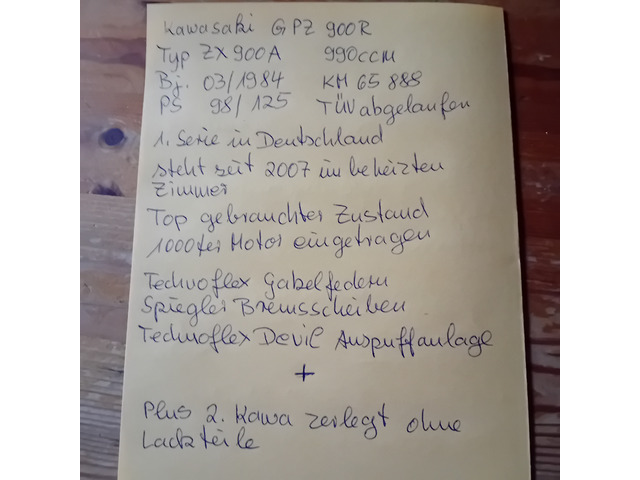 Kawasaki GPZ 900R
Typ ZX900A 990ccm
Bj. 03/1984 KM 65 888
PS 98/125 TÜV abgelaufen
1. Serie in Deutschland
steht seit 2007 im beheizten
Zimmer
Top gebrauchter Zustand
1000ter Motor eingetragen
Technoflex Gabelfedern
Spiegler Bremsscheiben
Technoflex Devil Auspuffanlage
+
Plus 2. Kawa zerlegt ohne
Lackteile